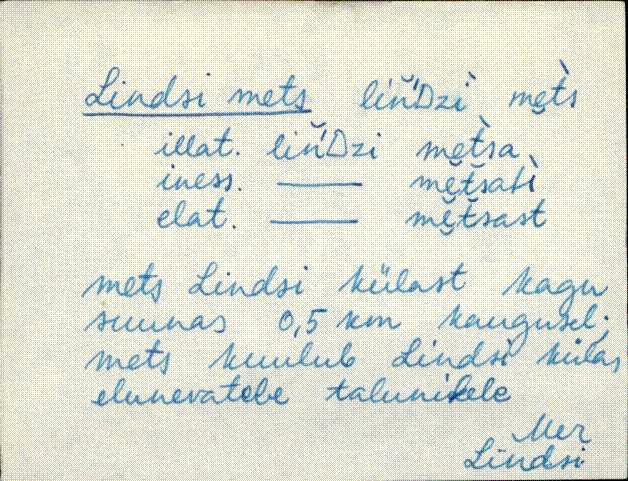 Lindsi mets liń̆Dzì mę̆t̀s
illat. liń̆Dzi mę̆t̀sa
iness. —— mę̆tsahì
elat. —— mę̆tsast
mets Lindsi külast kagu
suunas 0,5 km kaugusel;
mets kuulub Lindsi külas
elunevatele talunikele
Mer
Lindsi